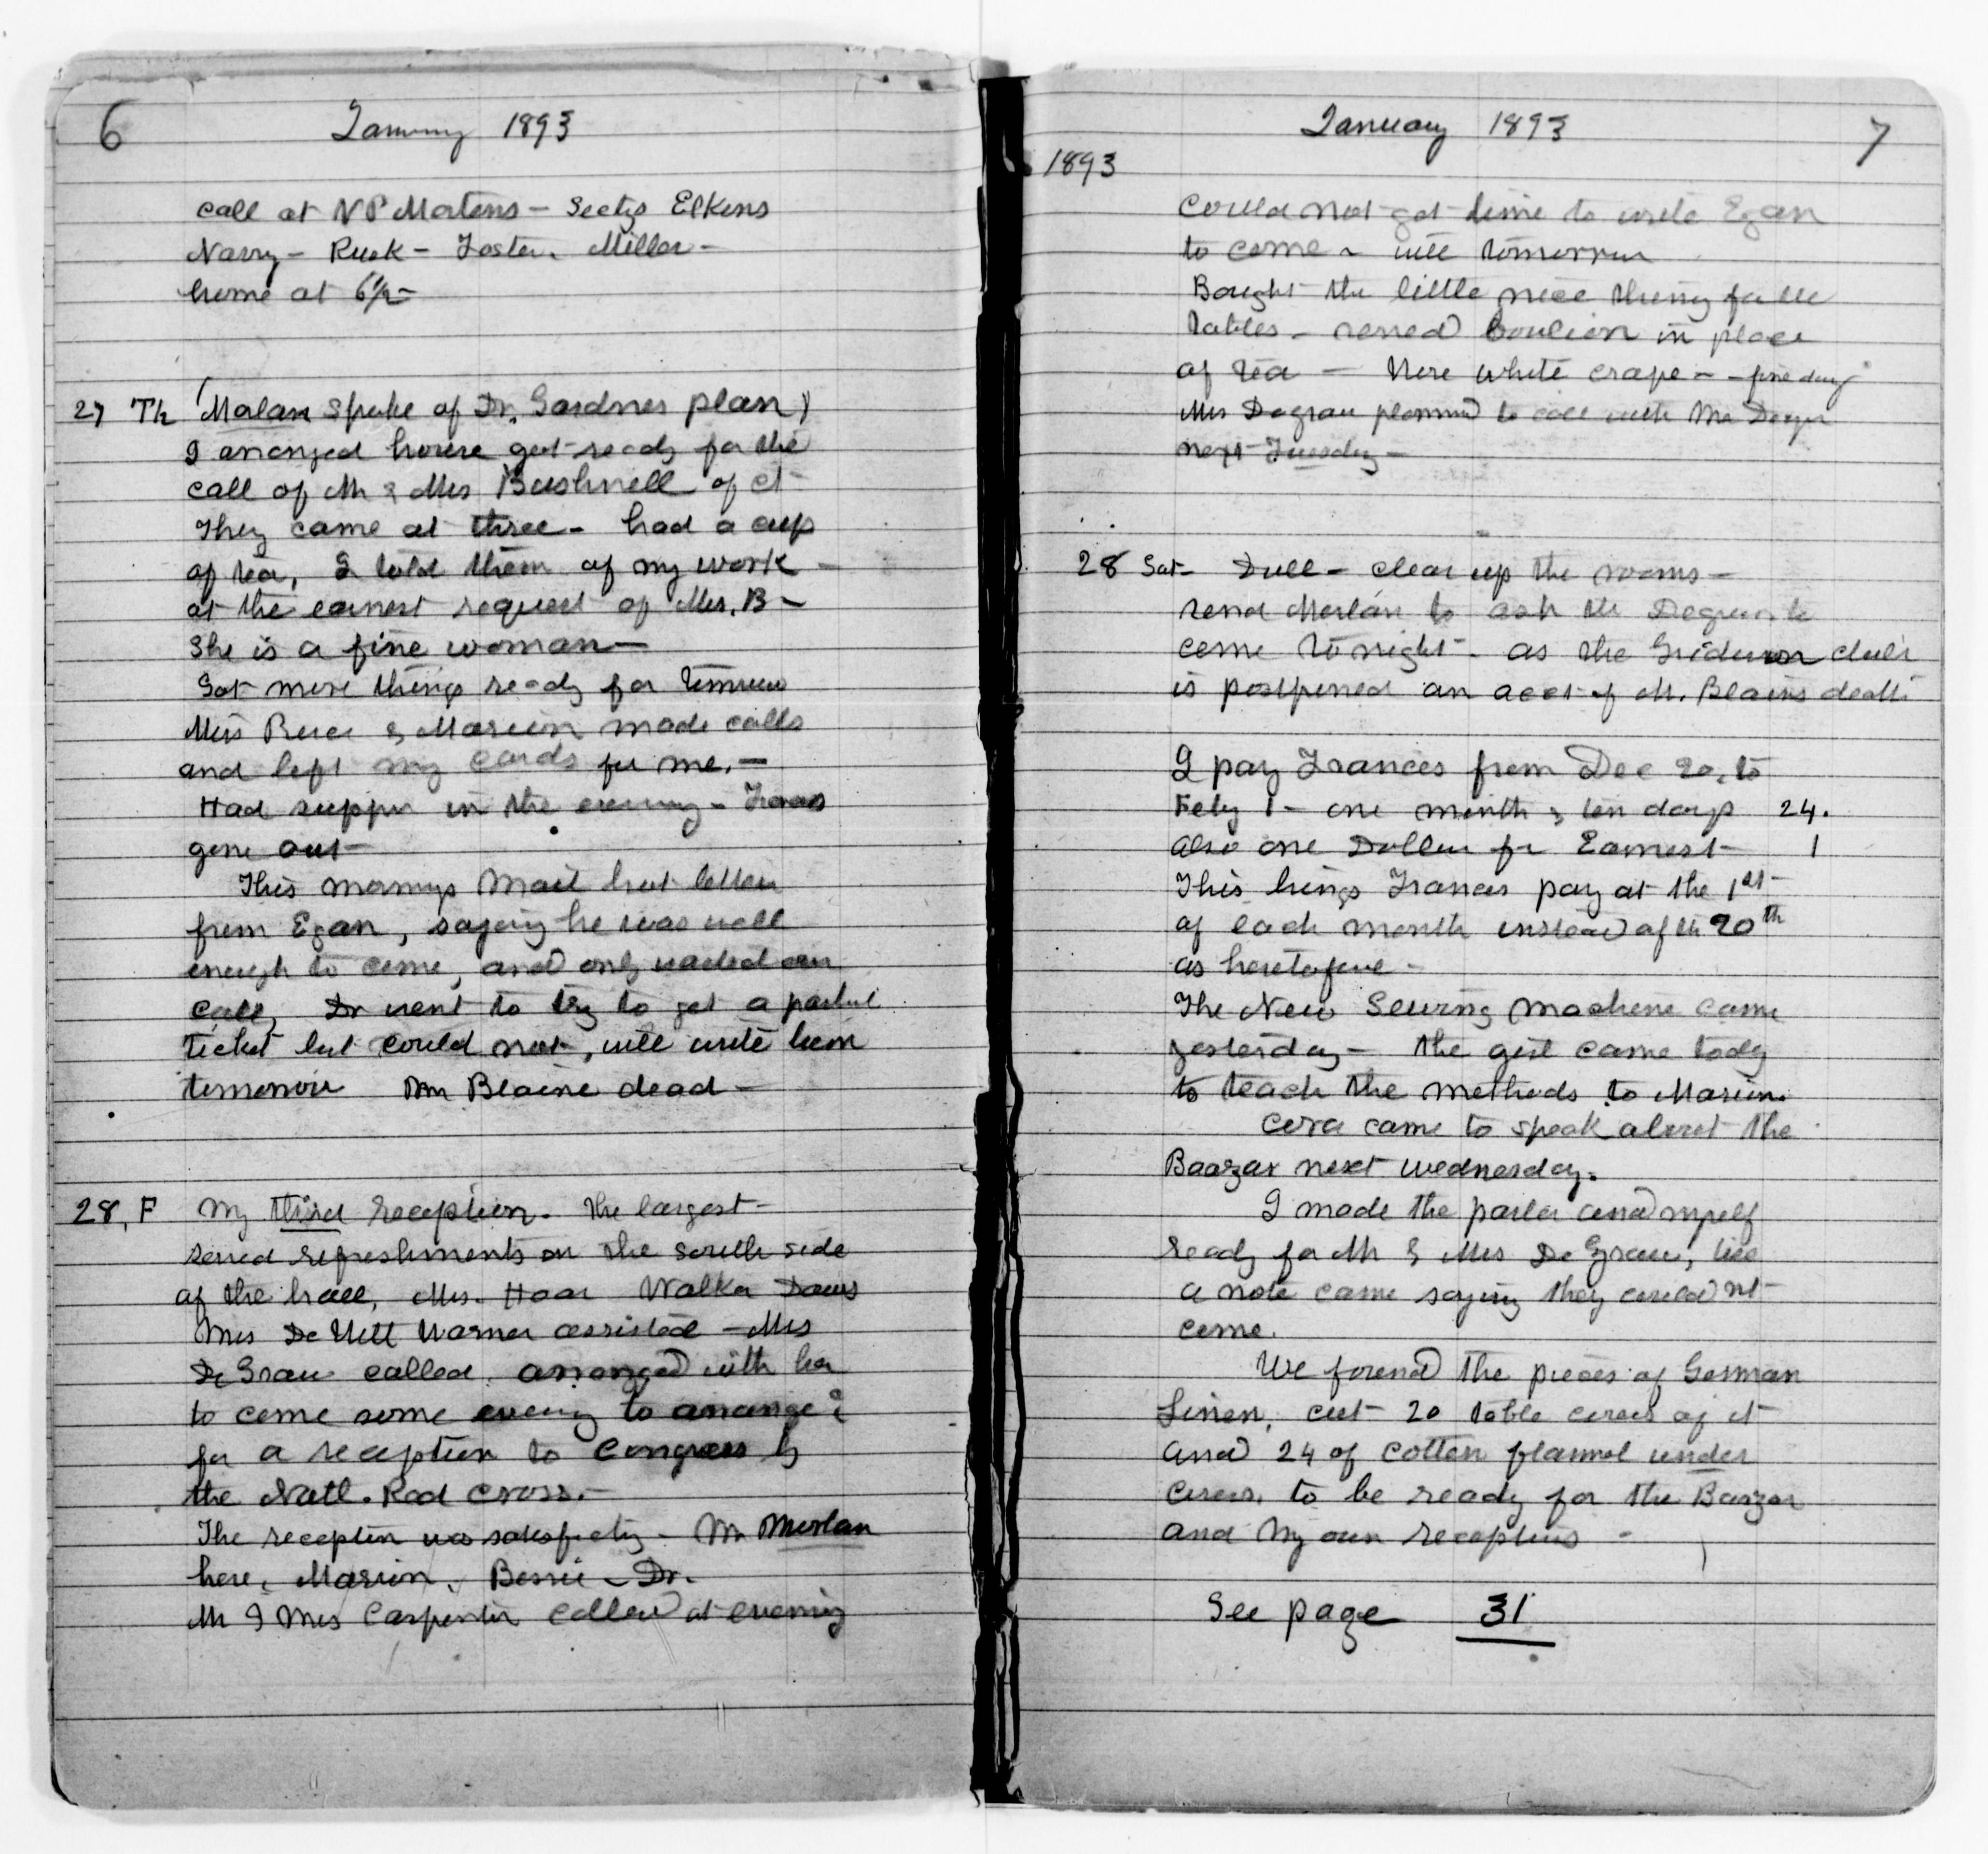 6
January 1893
call at V P Mortons - Sectys Elkins
Navy - Rusk - Foster. Miller -
home at 6½ -
27 Th (Morlan spoke of Dr. Gardners plan)
I arranged house got ready for the
call of Mr & Mrs Bushnell of Ct
They came at three - had a cup
of tea, I told them of my work -
at the earnest request of Mrs. B -
She is a fine woman -
Got more things ready for tomrow
Miss & Marion made calls
and left my cards for me. -
Had supper in the evening -
gone out -
This mornings mail brot letter
from Egan, saying he was well
enough to come, and only waited our
call, Dr went to try to get a partial
ticket but could not, will write him
tomorrow Mr Blaine dead -
28, F My third reception. The largest -
served refreshments on the south side
of the hall, Mrs. Hoar Walker Daws
Mrs De Witt Warner assisted - Mrs
De Grau called. arranged with her
to come some evening to arrange
for a reception to Congress by
the Natl. Red Cross. -
The reception was satisfacty - Mr Morlan
here, Marion, Bessie - Dr.
Mr & Mrs Carpenter called at evening
January 1893
7
1893
Could not get time to write Egan
to come - will tomorrow
Bought the little nice things for the
tables - served boulion in place
of tea - Wore white crape - - fine day
Mrs Degrau planned to call with Mrs
next Tuesday -
28 Sat - Dull - clear up the rooms -
send Morlan to ask the Degraus to
come tonight - as the Gridiron club
is postponed on acct of Mr. Blains death
I pay Frances from Dec 20, to
Feby 1 - one month & ten days 24.
also one Dollar for Earnest - 1
This brings Frances pay at the 1st -
of each month instead of the 20th
as heretofore -
The New Sewing Machine came
yesterday - the girl came today
to teach the methods to Marion.
Cora came to speak about the
Baazar next wednesday.
I made the parlor and myself
ready for Mr & Mrs De Grau, but
a note came saying they could nt
come.
We found the pieces of German
Linen, cut 20 table covers of it
and 24 of cotton flannel under
covers. to be ready for the Bazar
and my own receptions -
See page 31